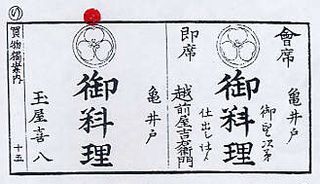 會席
亀井戸
御望次第
御料理
仕出し仕候
即席
越前屋吉右衛門
亀井戸
御料理
玉屋喜八
の
買物獨案内
十五